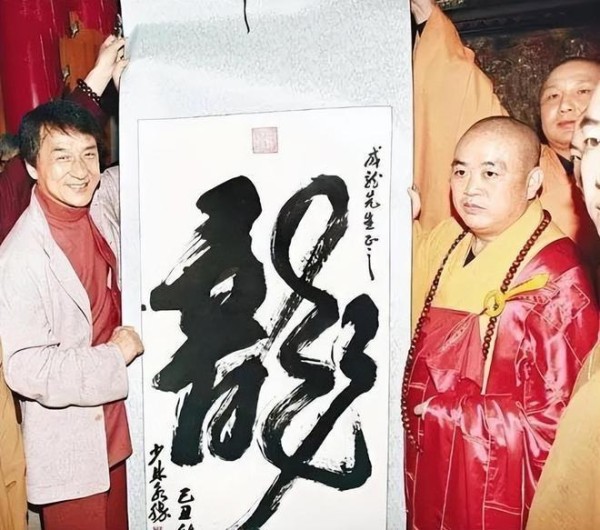 成龙先生正之
龍
己丑
少林永缘